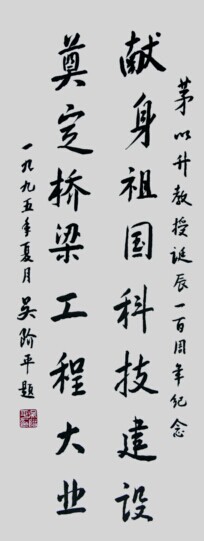 茅以升教授诞辰一百周年纪念
献身祖国科技建设
奠定桥梁工程大业
一九九五年夏月 吴阶平题